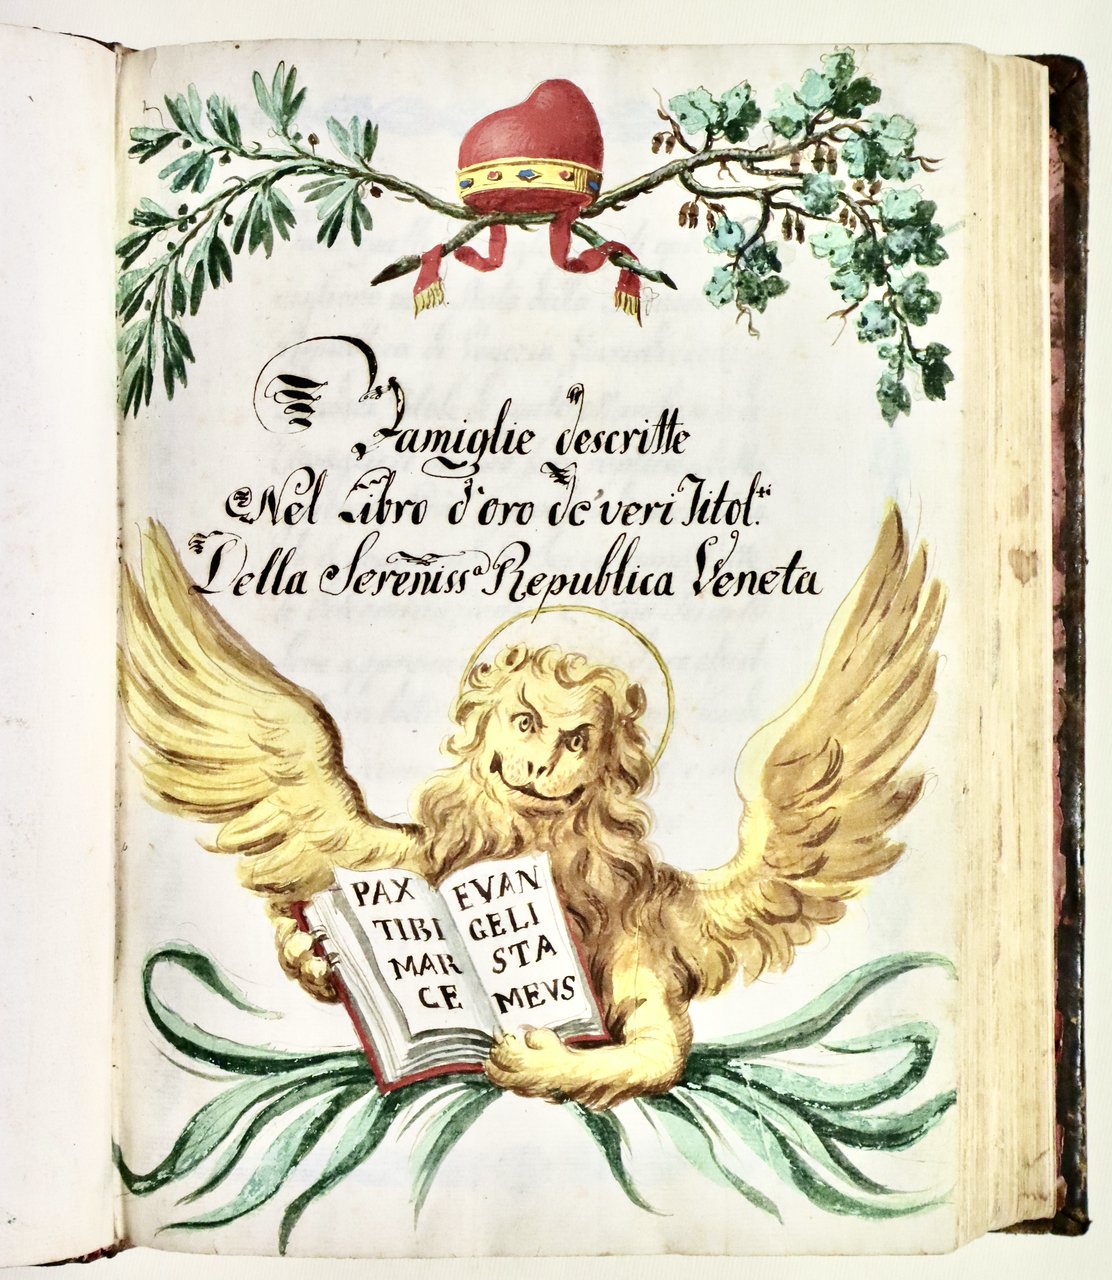 Famiglie descritte
Nel Libro d'oro de' veri Titol.ti
Della Sereniss.a Republica Veneta
PAX
TIBI
MAR
CE
EVAN
GELI
STA
MEVS